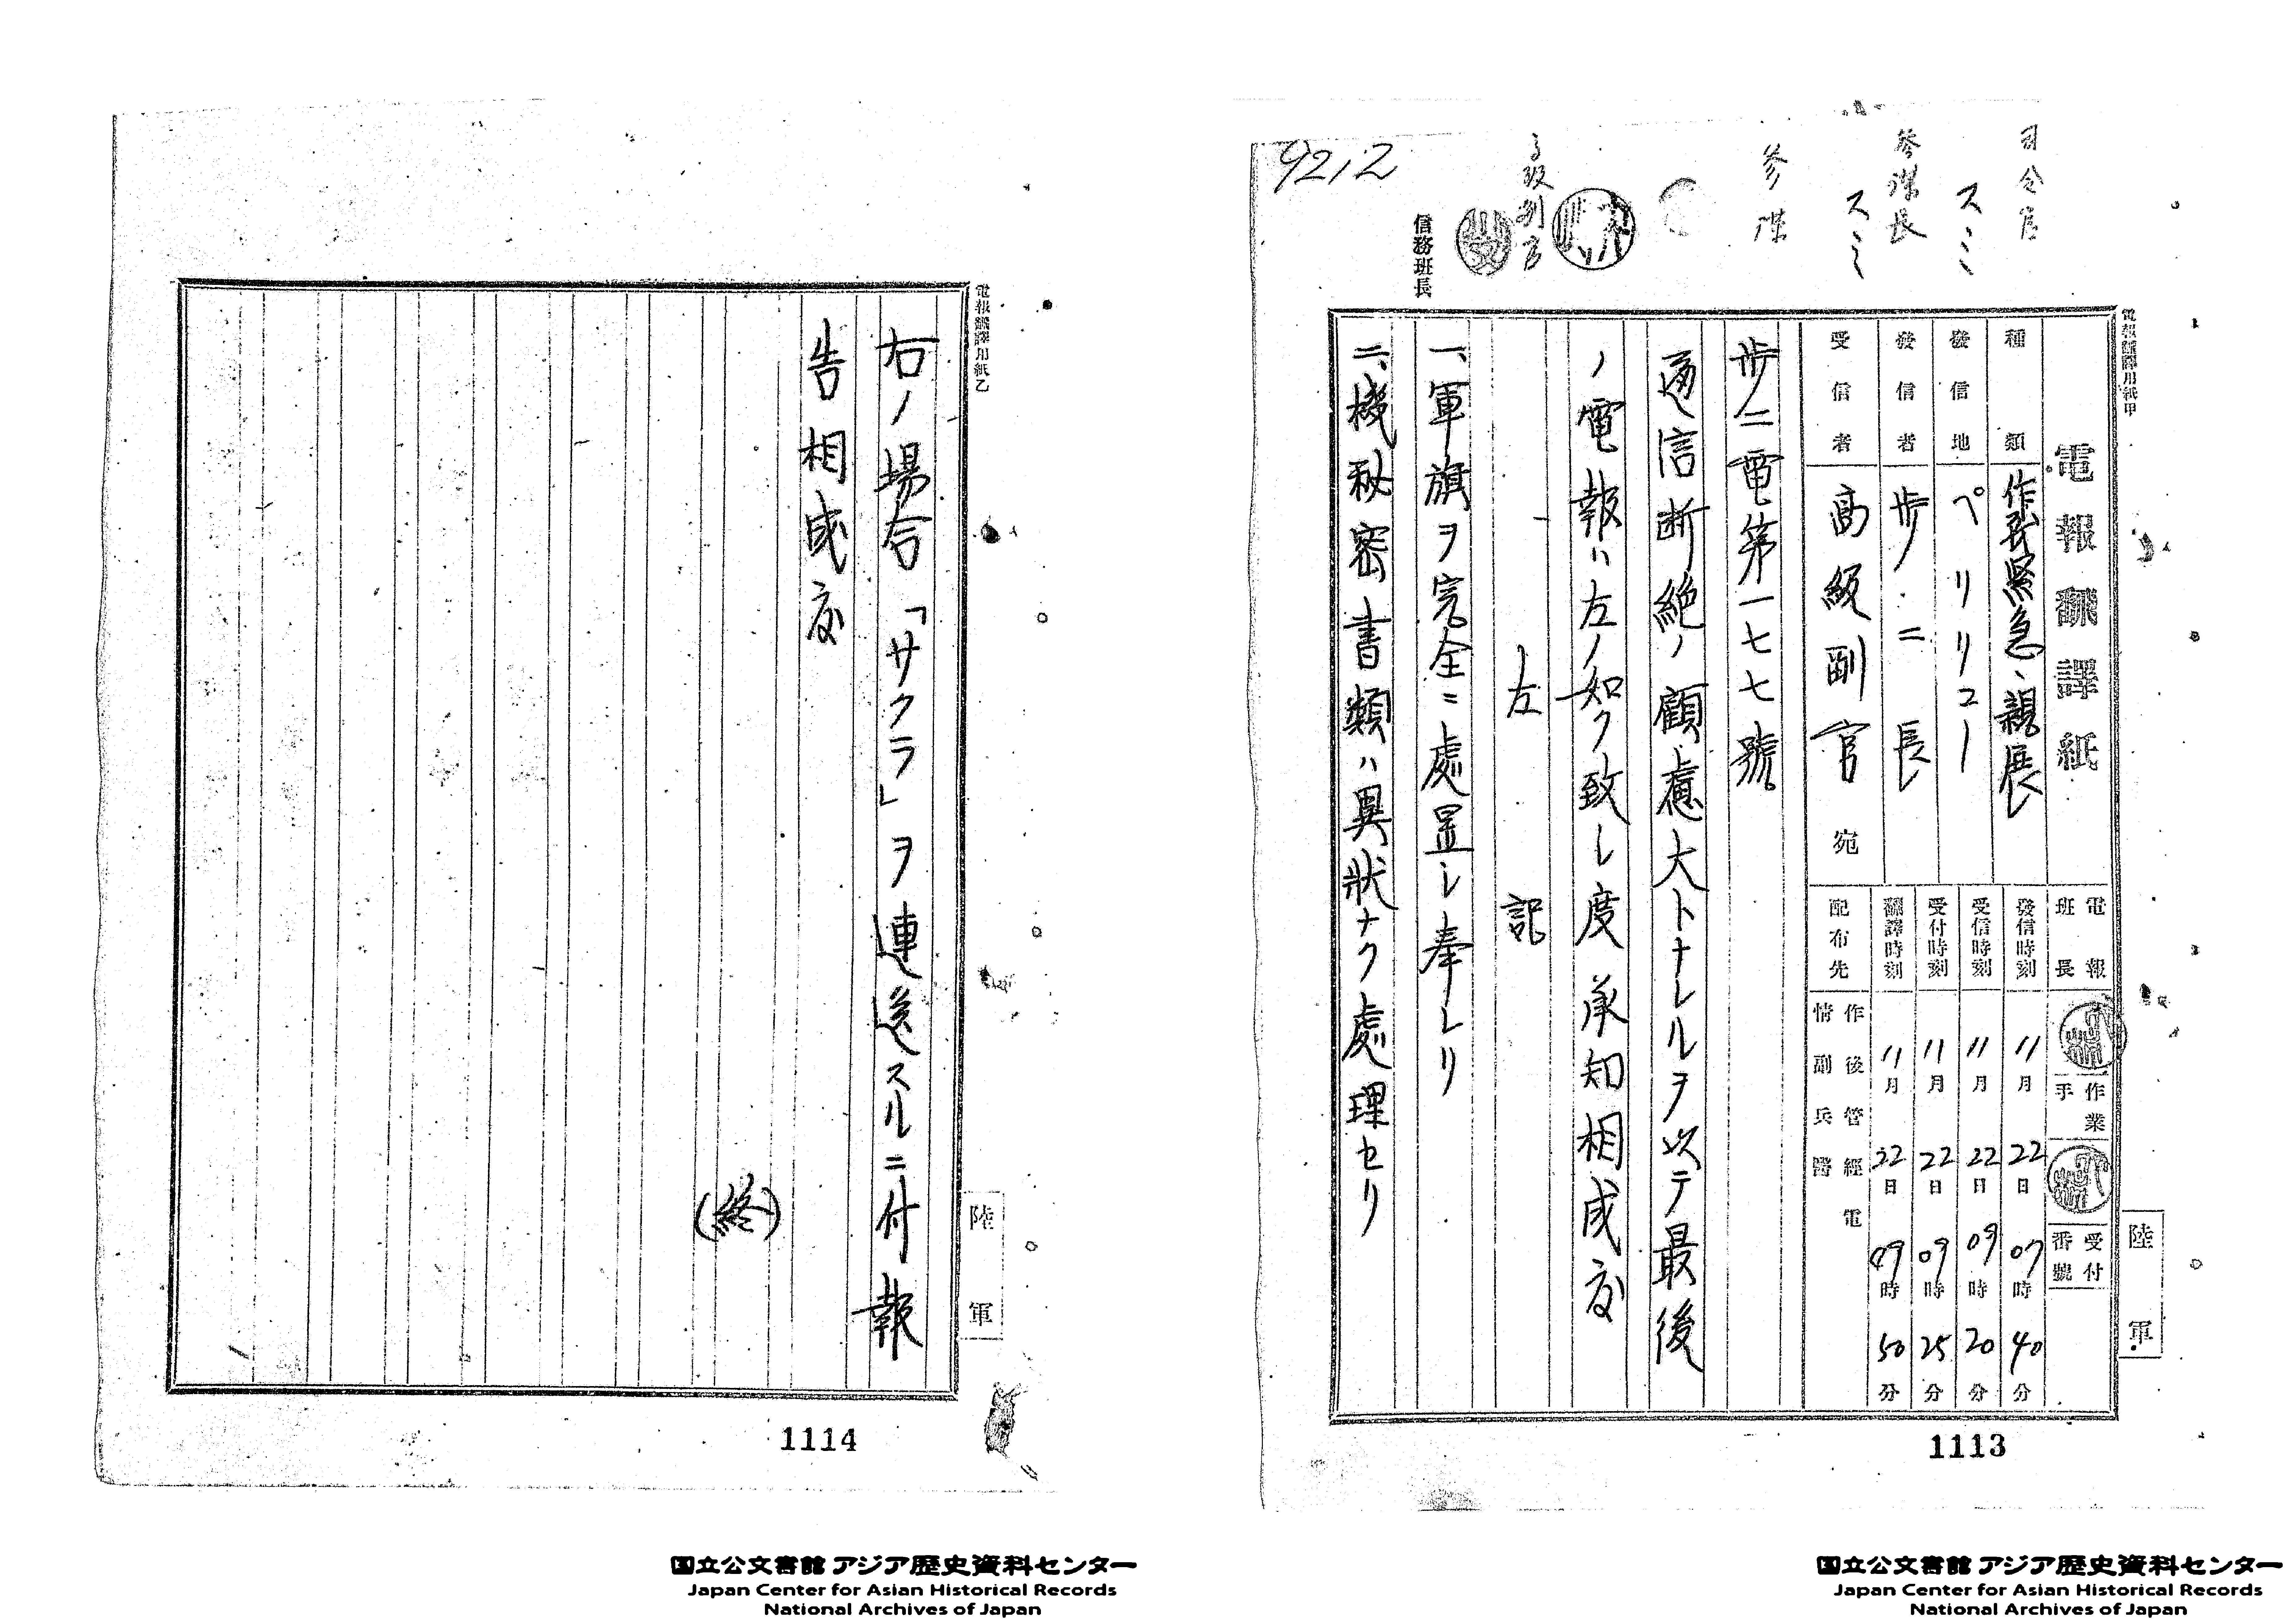 9212
司令官
スミ
参謀長
スミ
参謀
高級副官
信務班長
電報飜譯用紙甲
電報飜譯紙
種類 作戰緊急、親展
發信地 ペリリユー
發信者 歩二長
受信者 高級副官宛
電報班長
作業手
受付番號
發信時刻 11月22日07時40分
受信時刻 11月22日09時20分
受付時刻 11月22日09時25分
飜譯時刻 11月22日09時50分
配布先 作後管經電
情副兵醫
陸軍
歩二電第一七七號
通信断絶ノ顧慮大トナレルヲ以テ最後
ノ電報ハ左ノ如ク致シ度承知相成度
左記
一、軍旗ヲ完全ニ處置シ奉レリ
二、機秘密書類ハ異状ナク處理セリ
1113
国立公文書館 アジア歴史資料センター
Japan Center for Asian Historical Records
National Archives of Japan
電報飜譯用紙乙
右ノ場合「サクラ」ヲ連送スルニ付報
告相成度
(終)
陸軍
1114
国立公文書館 アジア歴史資料センター
Japan Center for Asian Historical Records
National Archives of Japan